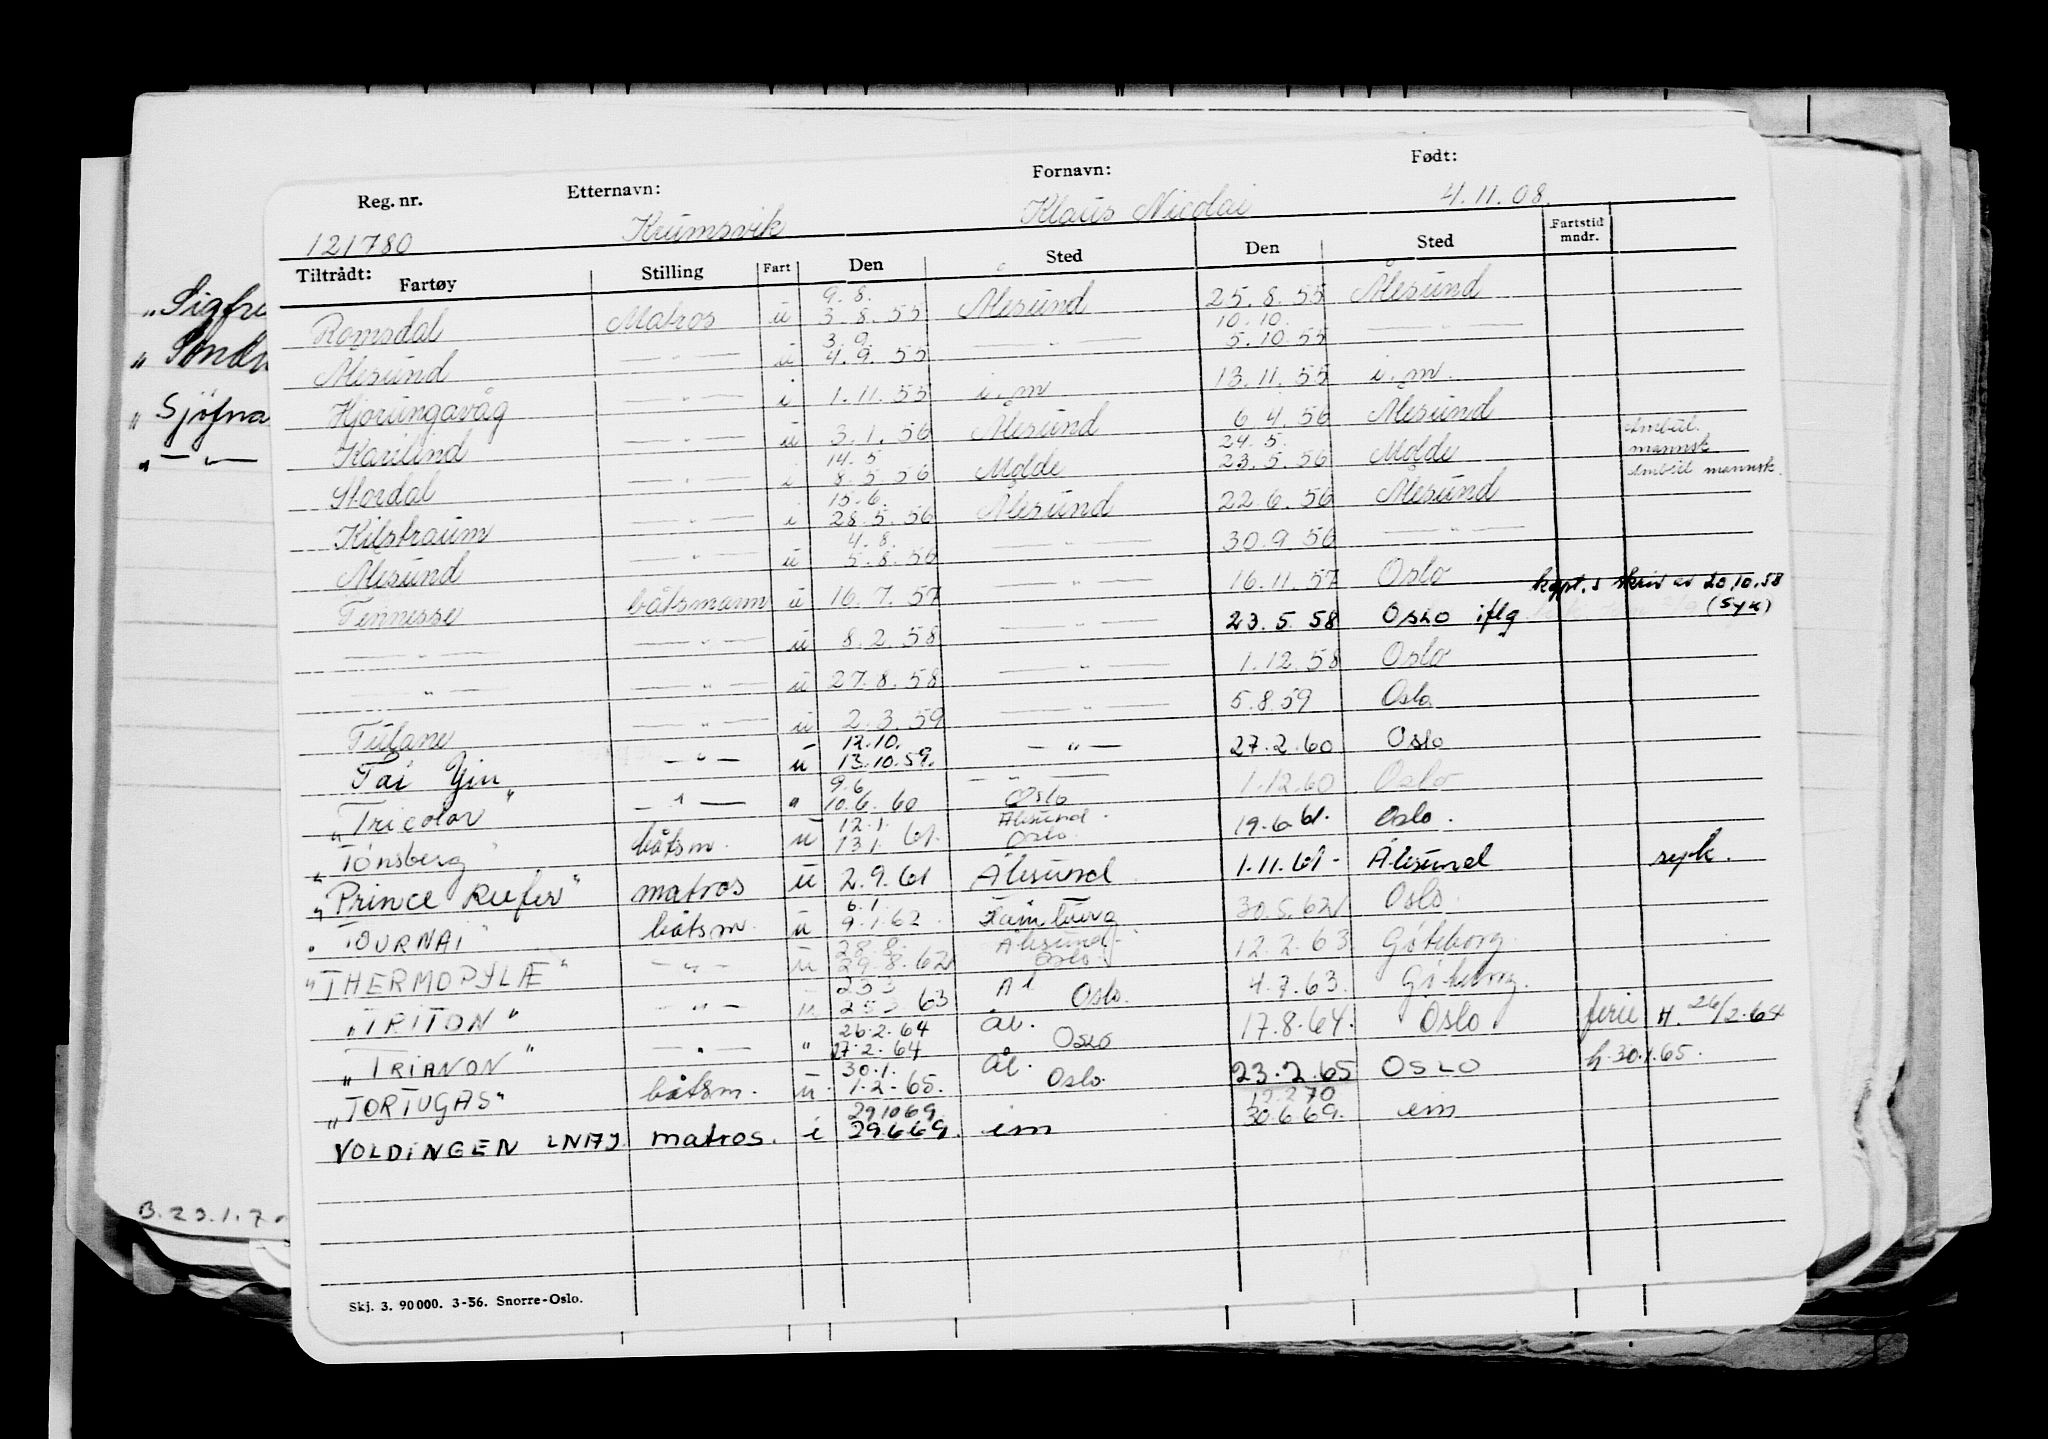 Reg. nr. Etternavn: Fornavn: Født:
121780 Krumsvik Klaus Nicolai 4.11.08.
Tiltrådt: Fartøy Stilling Fart Den Sted Den Sted Fartstid mndr.
9.8.
Romsdal Matros u 3.8.55 Ålesund 25.8.55 Ålesund
3.9. 10.10.
Ålesund — " — u 4.9.55 — " — 5.10.55 — " —
Hjørungavåg — " — i 1.11.55 i.m 13.11.55 i.m.
Karilind — " — u 3.1.56 Ålesund 6.4.56 Ålesund
14.5 24.5. mannsk
Stordal — " — i 8.5.56 Molde 23.5.56 Molde mannsk.
15.6.
Kilstraum — " — i 28.5.56 Ålesund 22.6.56 Ålesund
4.8.
Ålesund — " — u 5.8.56 — " — 30.9.56 — " —
Tennesse båtsmann u 16.7.57 — " — 16.11.57 Oslo
skriv av 20.10.58
— " — — " — u 8.2.58 — " — 23.5.58 Oslo iflg (syk)
— " — — " — u 27.8.58 — " — 1.12.58 Oslo
Tulane — " — u 2.3.59 — " — 5.8.59 Oslo
12.10.
Tai Yin — " — u 13.10.59. — " — 27.2.60 Oslo
9.6
"Tricolor" — " — " 10.6.60 Oslo 1.12.60 Oslo
12.1. Ålesund.
"Tønsberg" båtsm. u 13.1. 61. Oslo. 19.6.61. Oslo.
"Prince Reefer" matros u 2.9.61 Ålesund 1.11.61- Ålesund syk.
6.1
" TOURNAI" båtsm. u 9.1.62. Hamburg 30.5.62 Oslo.
28.8. Ålesund.
"THERMOPYLÆ" — " — u 29.8.62 Oslo. 12.2.63 Göteborg.
23 3 Ål
"TRITON" — " — u 25 3 63 Oslo. 4.7.63. Göteborg.
26.2.64 Ål.
"TRIANON" — " — " 27.2.64 Oslo 17.8.64. Oslo ferie H. 26/2.64
30.1. Ål.
"TORTUGAS" båtsm. u. 1.2-65. Oslo. 23.2.65 OSLO h.30.1.65.
29.10 69. 12.2 70
VOLDINGEN LNAJ matros. i 29.6 69. im 30.6 69. im
Skj. 3. 90 000. 3-56. Snorre-Oslo.
"Sigfr
"
" Sjøfna
" — " —
B.23.1.7